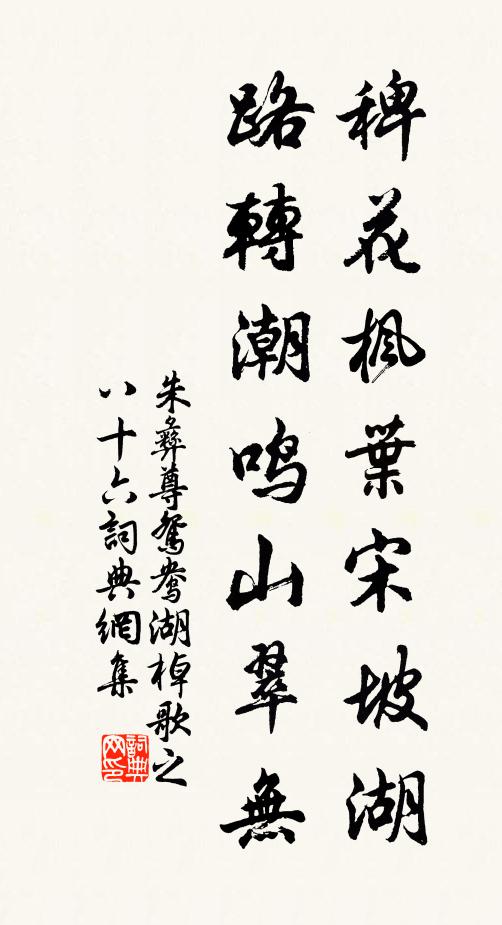 稗花楓葉宋坡湖
路轉潮鳴山翠無
朱彝尊鴛鴦湖棹歌之
八十六詞典網集
詞典
网印